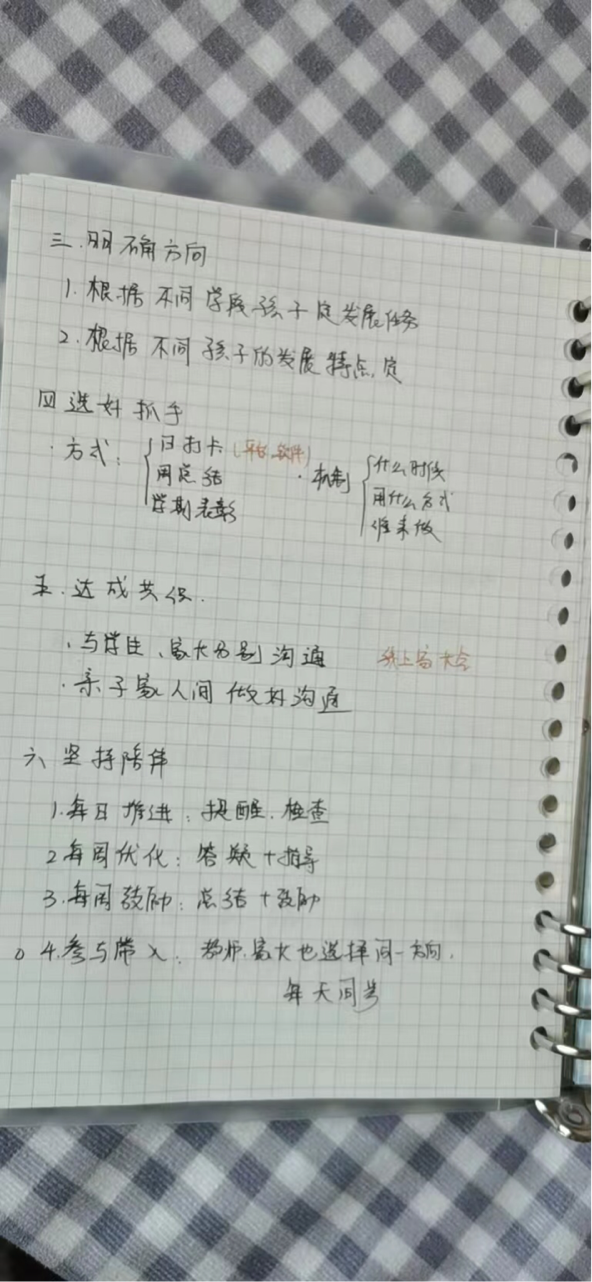 三.明确方向
1.根据不同学段孩子定发展任务
2.根据不同孩子的发展特点,定
四选好抓手
·方式:
日打卡(平台、软件)
周总结
学期表彰
·机制
什么时候
用什么方式
谁来做
五.达成共识.
·与学生、家长分别沟通 线上家长会
·亲子家人间做好沟通
六、坚持陪伴
1.每日推进:提醒.检查
2每周优化:答疑+指导
3.每周鼓励:总结+鼓励
4.参与带入:教师.家长也选择同一方向.
每天同步